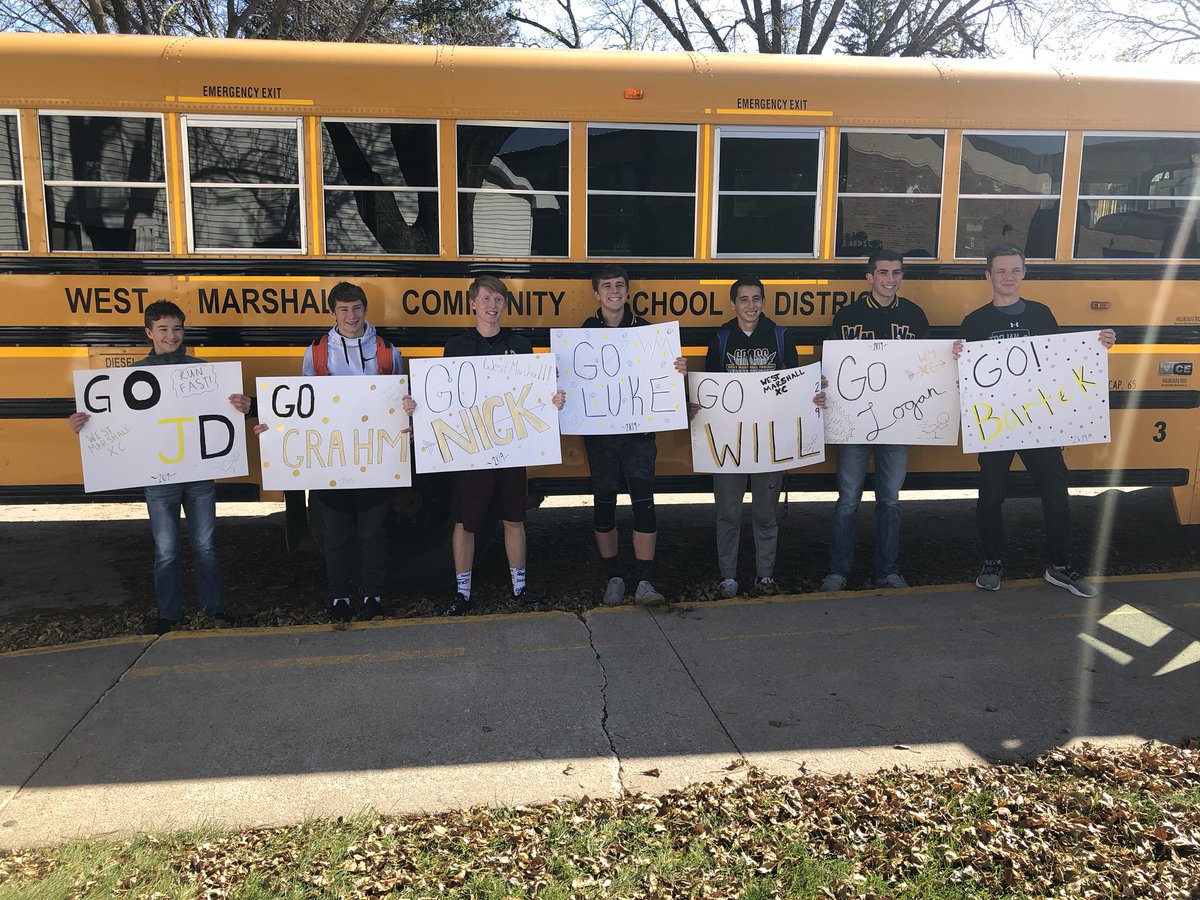 EMERGENCY EXIT
EMERGENCY EXIT
WEST MARSHALL COMMUNITY SCHOOL DISTRI
DIESEL
CAP. 65
3
GO
RUN FAST!
JD
WEST MARSHALL
XC
GO
GRAHM
GO
West Marshall!!!
NICK
2K19
GO
WM
LUKE
2K19
GO
WEST
MARSHALL
XC
WILL
GO
WM
XC
Logan
2K19
GO!
Bartek
2K19
CROSS
IC
CE